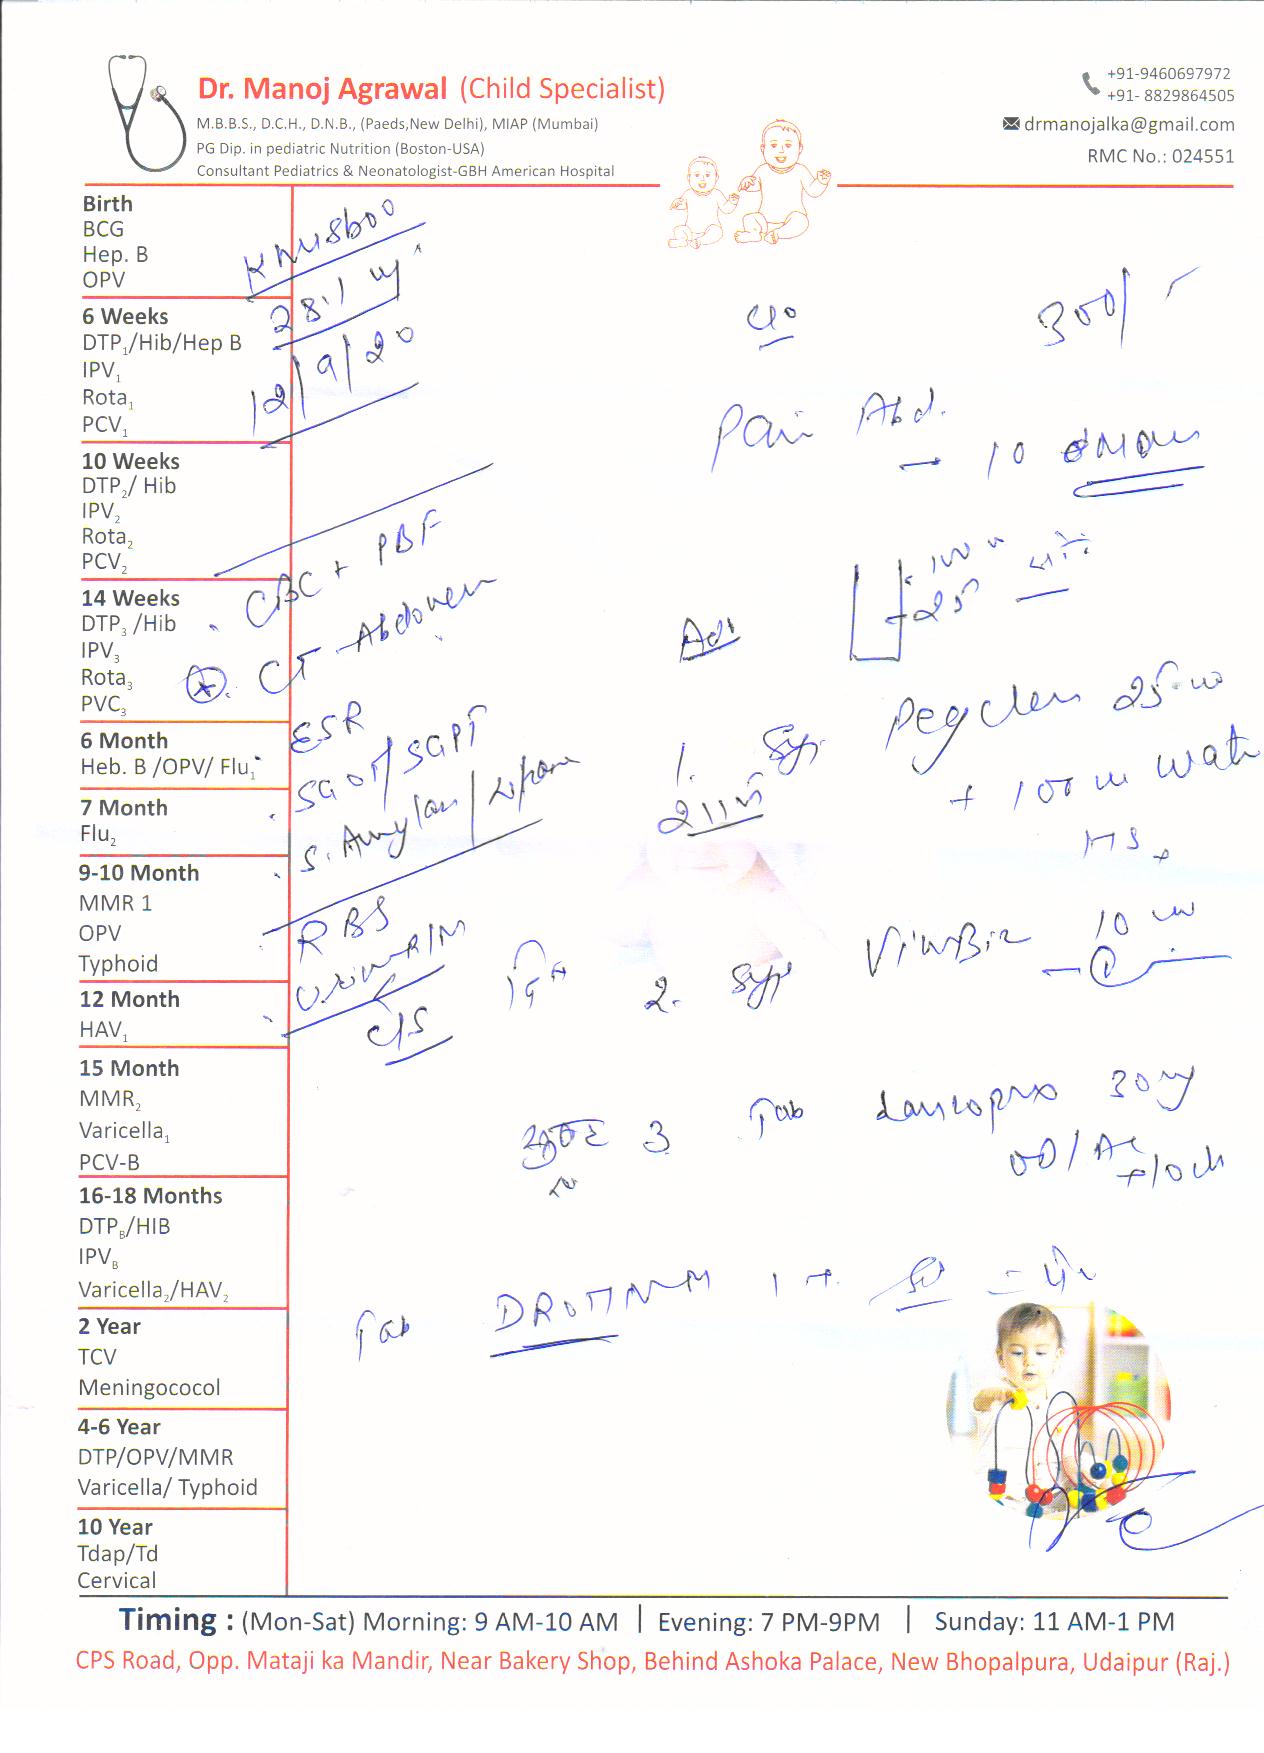 Dr. Manoj Agrawal (Child Specialist)
M.B.B.S., D.C.H., D.N.B., (Paeds,New Delhi), MIAP (Mumbai)
PG Dip. in pediatric Nutrition (Boston-USA)
Consultant Pediatrics & Neonatologist-GBH American Hospital
+91-9460697972
+91- 8829864505
drmanojalka@gmail.com
RMC No.: 024551
Birth
BCG
Hep. B
OPV
6 Weeks
DTP₁/Hib/Hep B
IPV₁
Rota₁
PCV₁
10 Weeks
DTP₂/ Hib
IPV₂
Rota₂
PCV₂
14 Weeks
DTP₃ /Hib
IPV₃
Rota₃
PVC₃
6 Month
Heb. B /OPV/ Flu₁
7 Month
Flu₂
9-10 Month
MMR 1
OPV
Typhoid
12 Month
HAV₁
15 Month
MMR₂
Varicella₁
PCV-B
16-18 Months
DTP_B/HIB
IPV_B
Varicella₂/HAV₂
2 Year
TCV
Meningococol
4-6 Year
DTP/OPV/MMR
Varicella/ Typhoid
10 Year
Tdap/Td
Cervical
KHUSBOO
28.1
12/9/20
CBC + PBF
CT Abdomen
ESR
SGOT/SGPT
S. Amylase/Lipase
RBS
Urine R/M
C/S
300/-
Pain Abd.
10
100
25
Adv
1. Syp Pegclear 25
+ 100 ml water
HS
2. Syp 10
3 Tab 30 mg
OD/AC
Tab DROTIN M 1
Timing : (Mon-Sat) Morning: 9 AM-10 AM | Evening: 7 PM-9PM | Sunday: 11 AM-1 PM
CPS Road, Opp. Mataji ka Mandir, Near Bakery Shop, Behind Ashoka Palace, New Bhopalpura, Udaipur (Raj.)